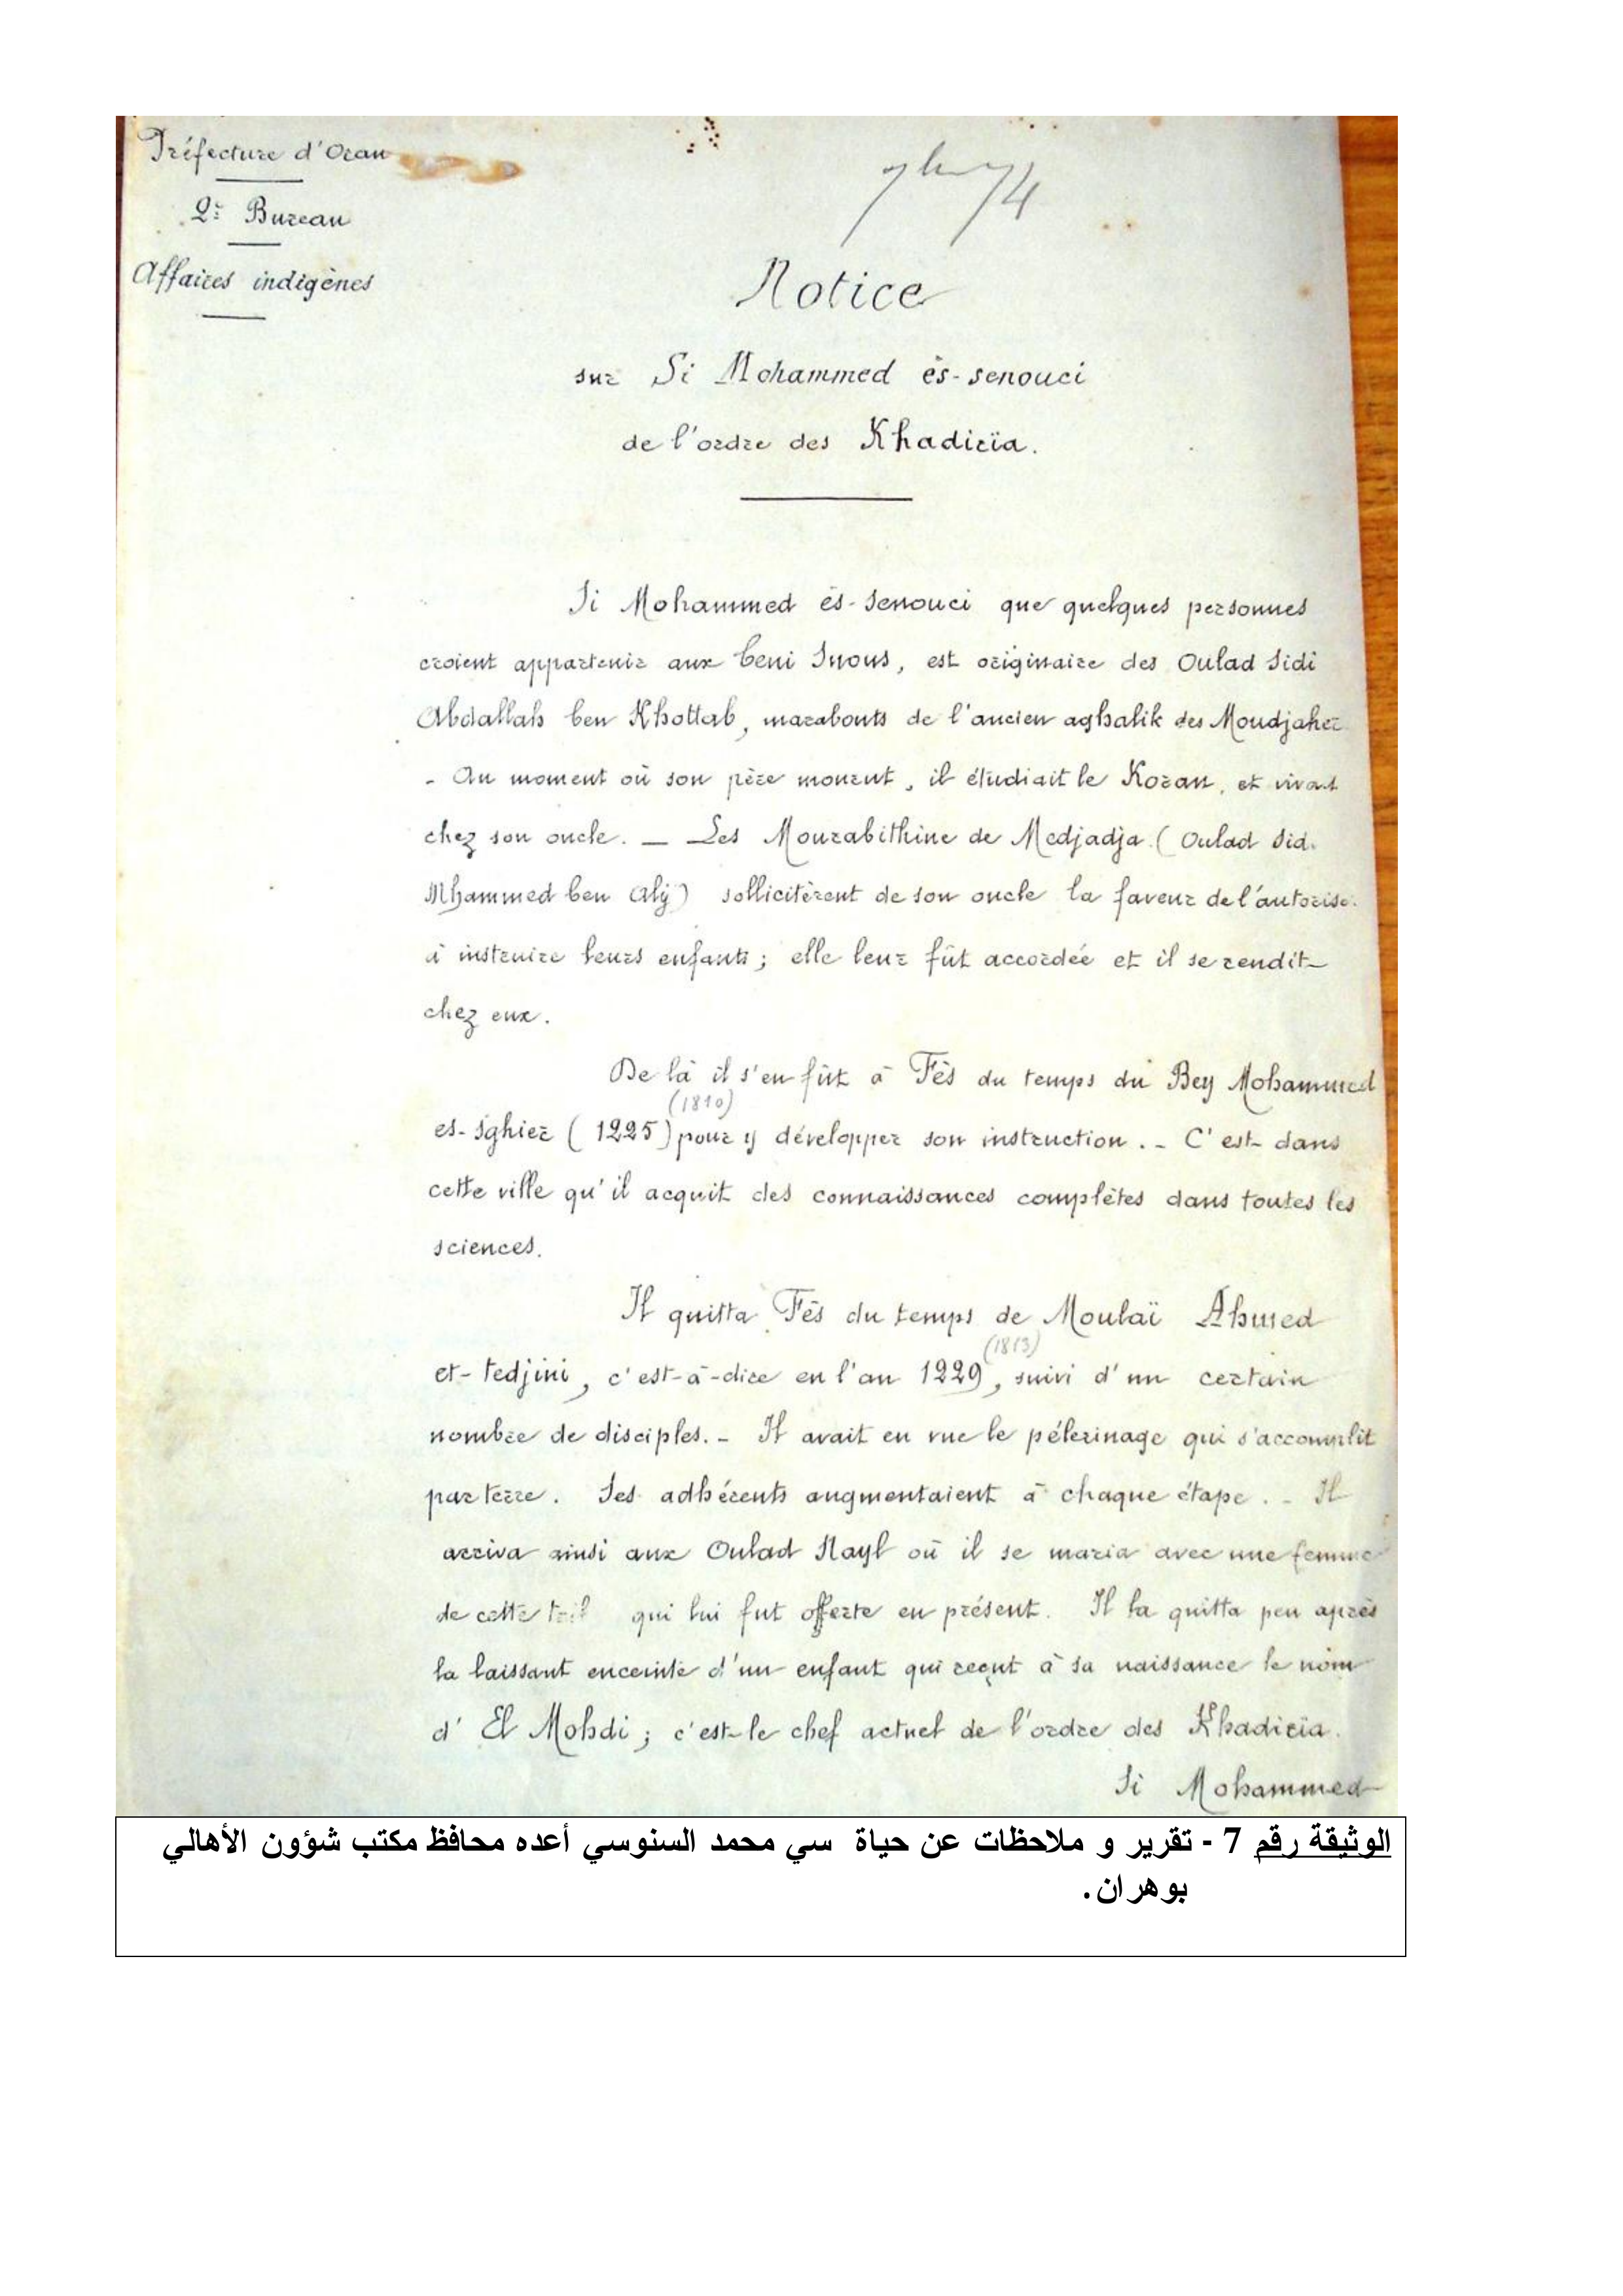 Préfecture d'Oran
2e Bureau
Affaires indigènes
Notice
sur Si Mohammed ès-senouci
de l'ordre des Khadirïa.
Si Mohammed ès-Senouci que quelques personnes
croient appartenir aux beni Snous, est originaire des Oulad Sidi
Abdallah ben Khottab, marabouts de l'ancien aghalik des Moudjaher
- Au moment où son père mourut, il étudiait le Koran, et vivait
chez son oncle. — Les Mourabithine de Medjadja (Oulad Sid.
Mhammed ben Aly) sollicitèrent de son oncle la faveur de l'autoriser
à instruire leurs enfants ; elle leur fût accordée et il se rendit
chez eux.
De là il s'en fût à Fès du temps du Bey Mohammed
(1810)
es-Sghier (1225) pour y développer son instruction. - C'est dans
cette ville qu'il acquit des connaissances complètes dans toutes les
sciences.
Il quitta Fès du temps de Moulaï Ahmed
(1813)
et-tedjini, c'est-à-dire en l'an 1229, suivi d'un certain
nombre de disciples. - Il avait en vue le pélerinage qui s'accomplit
par terre. Ses adhérents augmentaient à chaque étape. - Il
arriva ainsi aux Oulad Nayl où il se maria avec une femme
de cette qui lui fut offerte en présent. Il la quitta peu après
la laissant enceinte d'un enfant qui reçut à sa naissance le nom
d' El Mohdi ; c'est le chef actuel de l'ordre des Khadirïa.
Si Mohammed
الوثيقة رقم 7 - تقرير و ملاحظات عن حياة سي محمد السنوسي أعده محافظ مكتب شؤون الأهالي
بوهران.